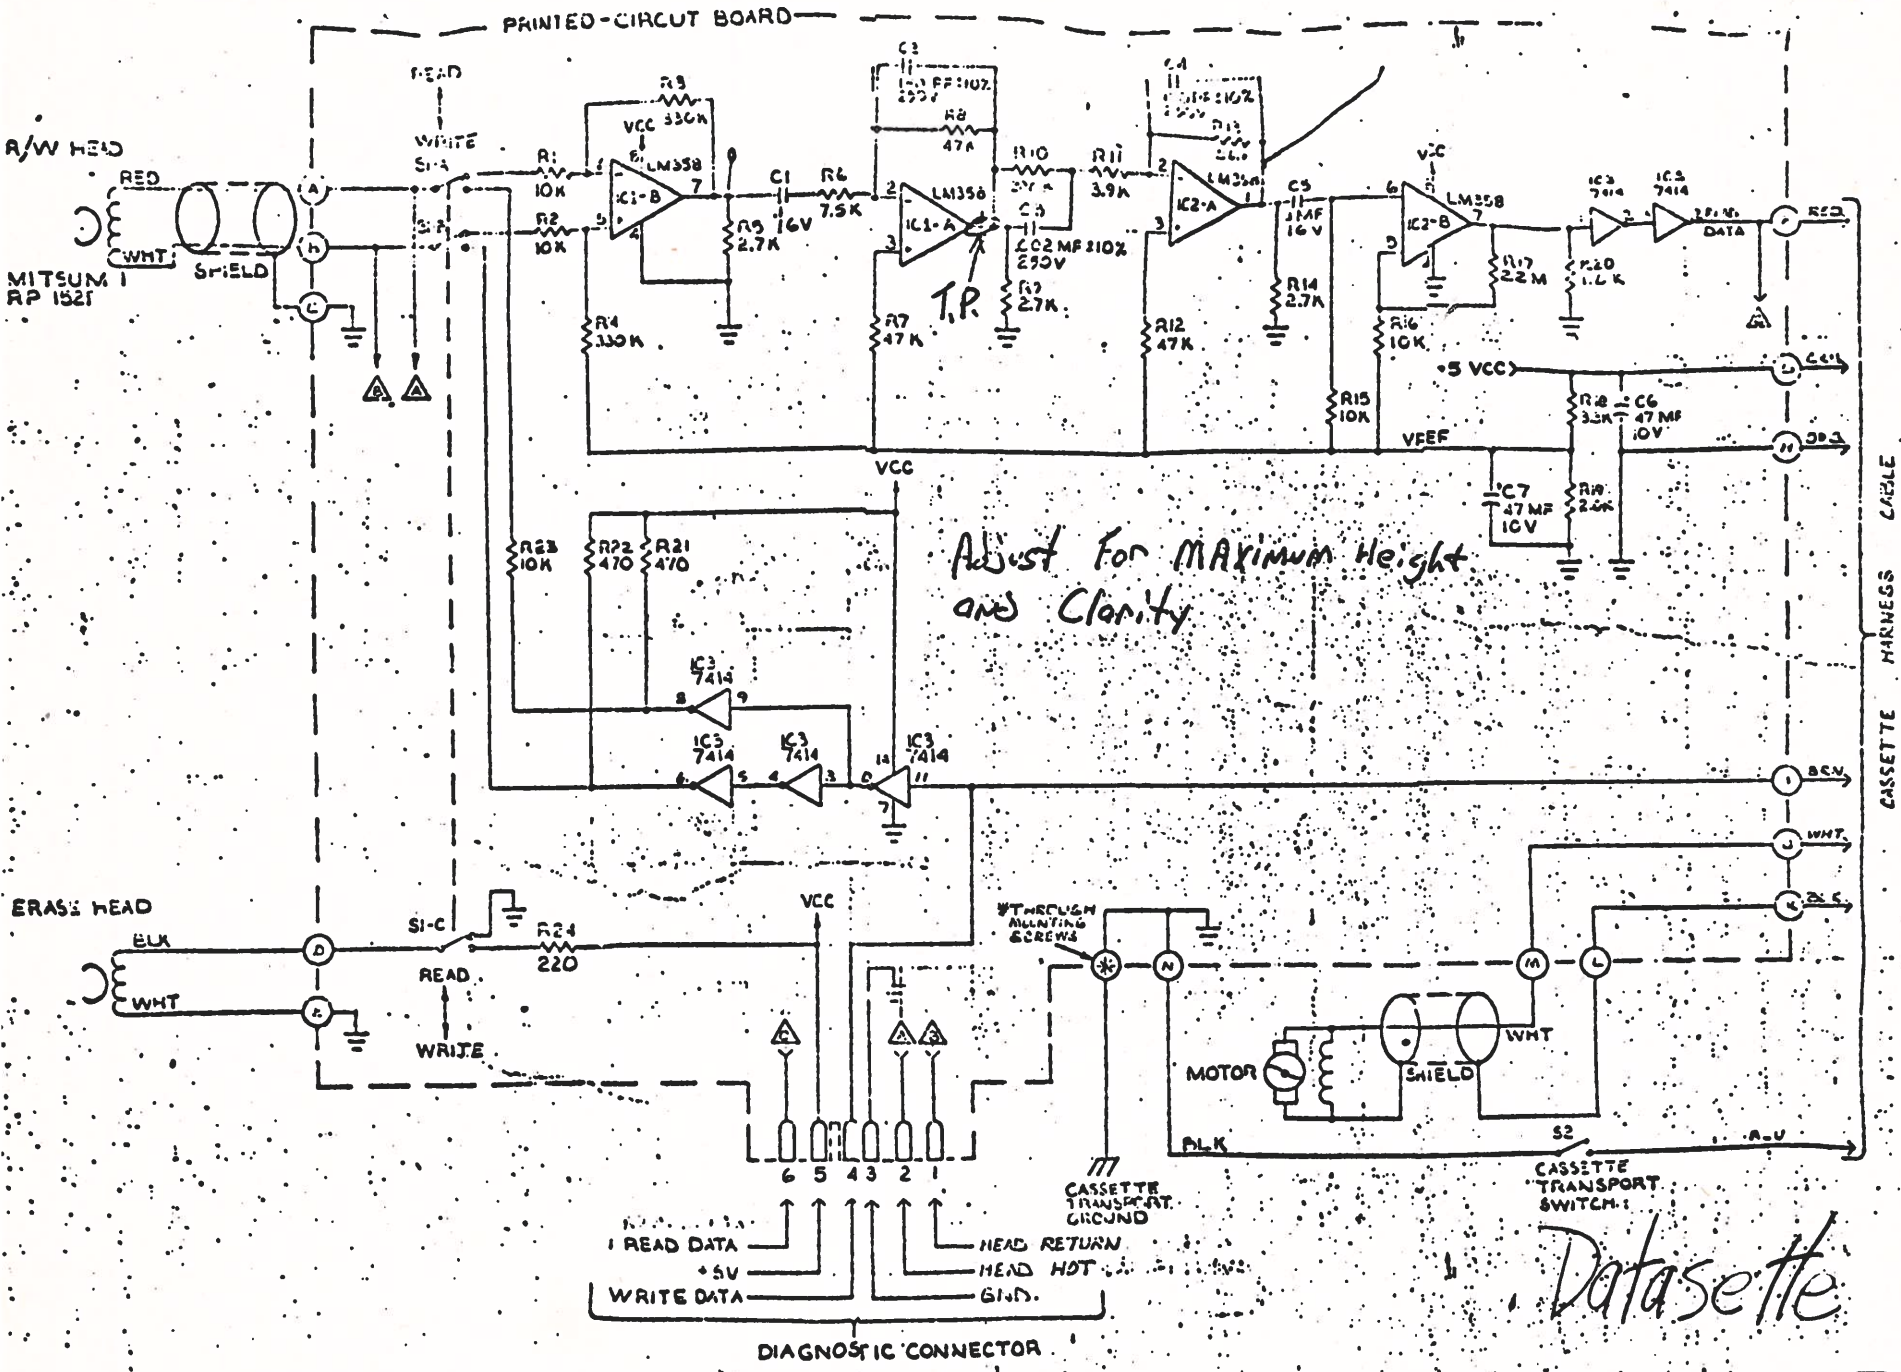 PRINTED-CIRCUT BOARD
READ
WRITE
S1-A
R/W HEAD
RED
WHT
SHIELD
MITSUMI
A
R1
10K
R2
10K
R3
330K
VCC
8
LM358
IC1-B
7
5
4
R4
330K
R5
2.7K
C1
16V
R6
7.5K
250V
R8
47K
2
LM358
IC1-A
3
T.P.
R7
47K
R10
C3
.002MF±10%
250V
R9
2.7K
R11
3.9K
C4
R13
2
3
IC2-A
1
R12
47K
C5
.1MF
16V
R14
2.7K
R15
10K
VCC
6
LM358
IC2-B
7
5
R16
10K
R17
2.2M
R20
IC3
7414
IC3
7414
DATA
RED
+5 VCC
R18
C6
47MF
10V
VREF
C7
47MF
10V
R19
B
A
VCC
R23
10K
R22
470
R21
470
Adjust For MAXIMUM Height
and Clarity
IC3
7414
8
9
IC3
7414
6
5
IC3
7414
4
3
IC3
7414
14
11
7
WHT
CASSETTE HARNESS CABLE
ERASE HEAD
BLK
WHT
D
S1-C
READ
WRITE
R24
220
VCC
*THROUGH
MOUNTING
SCREWS
*
N
M
L
J
K
C
A
B
MOTOR
SHIELD
WHT
BLK
S2
CASSETTE
TRANSPORT
SWITCH
CASSETTE
TRANSPORT
GROUND
6 5 4 3 2 1
READ DATA
+5V
WRITE DATA
HEAD RETURN
HEAD HOT
GND.
DIAGNOSTIC CONNECTOR
Datasette